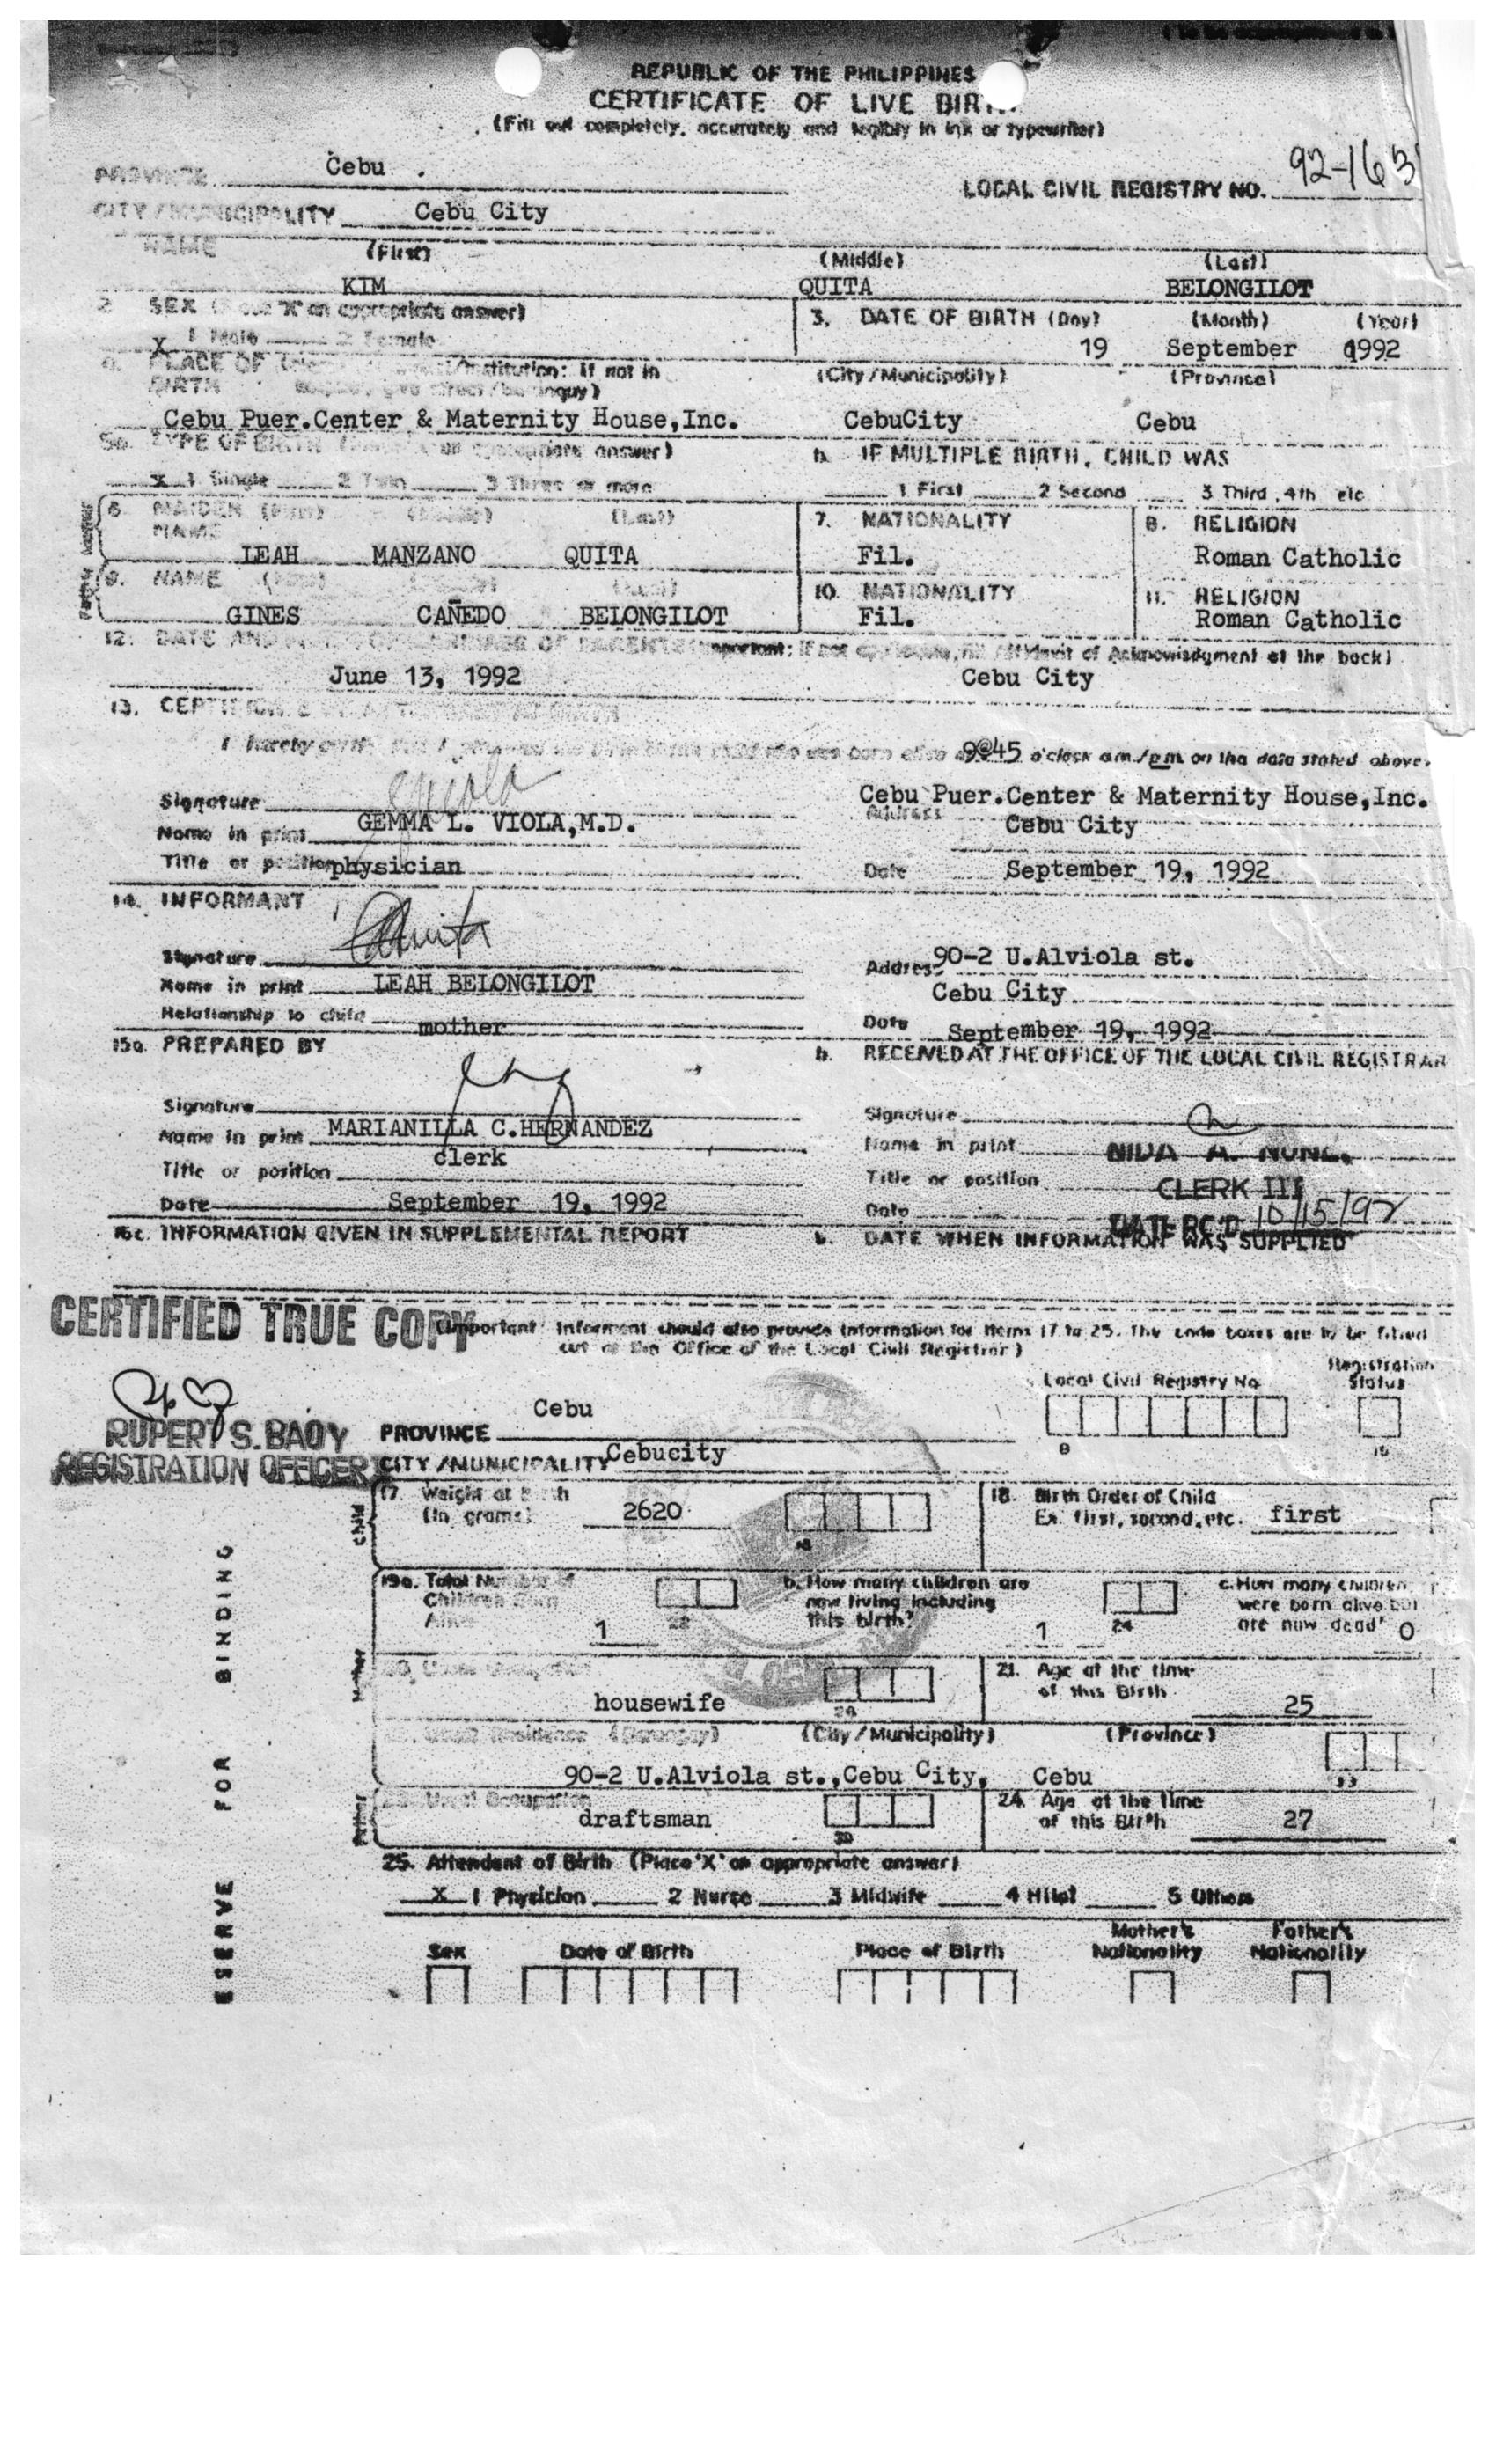 REPUBLIC OF THE PHILIPPINES
CERTIFICATE OF LIVE
(Fill out completely, accurately and legibly in ink or typewriter)
PROVINCE Cebu
LOCAL CIVIL REGISTRY NO. 92-163
CITY/MUNICIPALITY Cebu City
NAME (First) (Middle) (Last)
KIM QUITA BELONGILOT
2. SEX on appropriate answer)
X 1 Male 2 Female
3. DATE OF BIRTH (Day) (Month) (Year)
19 September 1992
PLACE OF BIRTH institution: if not in
give street/barangay) (City/Municipality) (Province)
Cebu Puer.Center & Maternity House,Inc. CebuCity Cebu
5a. TYPE OF BIRTH on appropriate answer)
x 1 Single 2 Twin 3 Three or more
b. IF MULTIPLE BIRTH, CHILD WAS
1 First 2 Second 3 Third, 4th etc
Mother
6. MAIDEN NAME (First) (Middle) (Last)
LEAH MANZANO QUITA
7. NATIONALITY
Fil.
8. RELIGION
Roman Catholic
Father
9. NAME (First) (Middle) (Last)
GINES CAÑEDO BELONGILOT
10. NATIONALITY
Fil.
11. RELIGION
Roman Catholic
12. DATE AND PLACE OF MARRIAGE OF PARENTS (Important: If not applicable, fill Affidavit of Acknowledgment at the back)
June 13, 1992 Cebu City
13.
I hereby certify that I attended the birth of the child who was born alive at 9@45 o'clock a.m./p.m. on the date stated above.
Signature
Name in print GEMMA L. VIOLA,M.D.
Title or position physician
Cebu Puer.Center & Maternity House,Inc.
Address Cebu City
Date September 19, 1992
14. INFORMANT
Signature
Name in print LEAH BELONGILOT
Relationship to child mother
Address 90-2 U.Alviola st.
Cebu City
Date September 19, 1992
15a. PREPARED BY
Signature
Name in print MARIANILLA C.HERNANDEZ
Title or position clerk
Date September 19, 1992
b. RECEIVED AT THE OFFICE OF THE LOCAL CIVIL REGISTRAR
Signature
Name in print NIDA A.
Title or position CLERK III
Date DATE RC'D 10/15/92
16c. INFORMATION GIVEN IN SUPPLEMENTAL REPORT
b. DATE WHEN INFORMATION WAS SUPPLIED
CERTIFIED TRUE COPY
(Important: Informant should also provide information for items 17 to 25. The code boxes are to be filled
out at the Office of the Local Civil Registrar)
RUPERT S. BAOY
REGISTRATION OFFICER
Local Civil Registry No.
Registration Status
PROVINCE Cebu
CITY/MUNICIPALITY Cebucity
Child
17. Weight at Birth
(in grams) 2620
18. Birth Order of Child
Ex. first, second, etc. first
Mother
19a. Total Number of
Children Born
Alive 1
b. How many children are
now living including
this birth? 1
c. How many children
were born alive but
are now dead? 0
housewife
21. Age at the time
of this Birth 25
Usual Residence (Barangay) (City/Municipality) (Province)
90-2 U.Alviola st., Cebu City, Cebu
Father
23. Usual Occupation
draftsman
24. Age at the time
of this Birth 27
25. Attendant of Birth (Place 'X' on appropriate answer)
X 1 Physician 2 Nurse 3 Midwife 4 Hilot 5 Others
Sex Date of Birth Place of Birth Mother's Nationality Father's Nationality
FOR BINDING